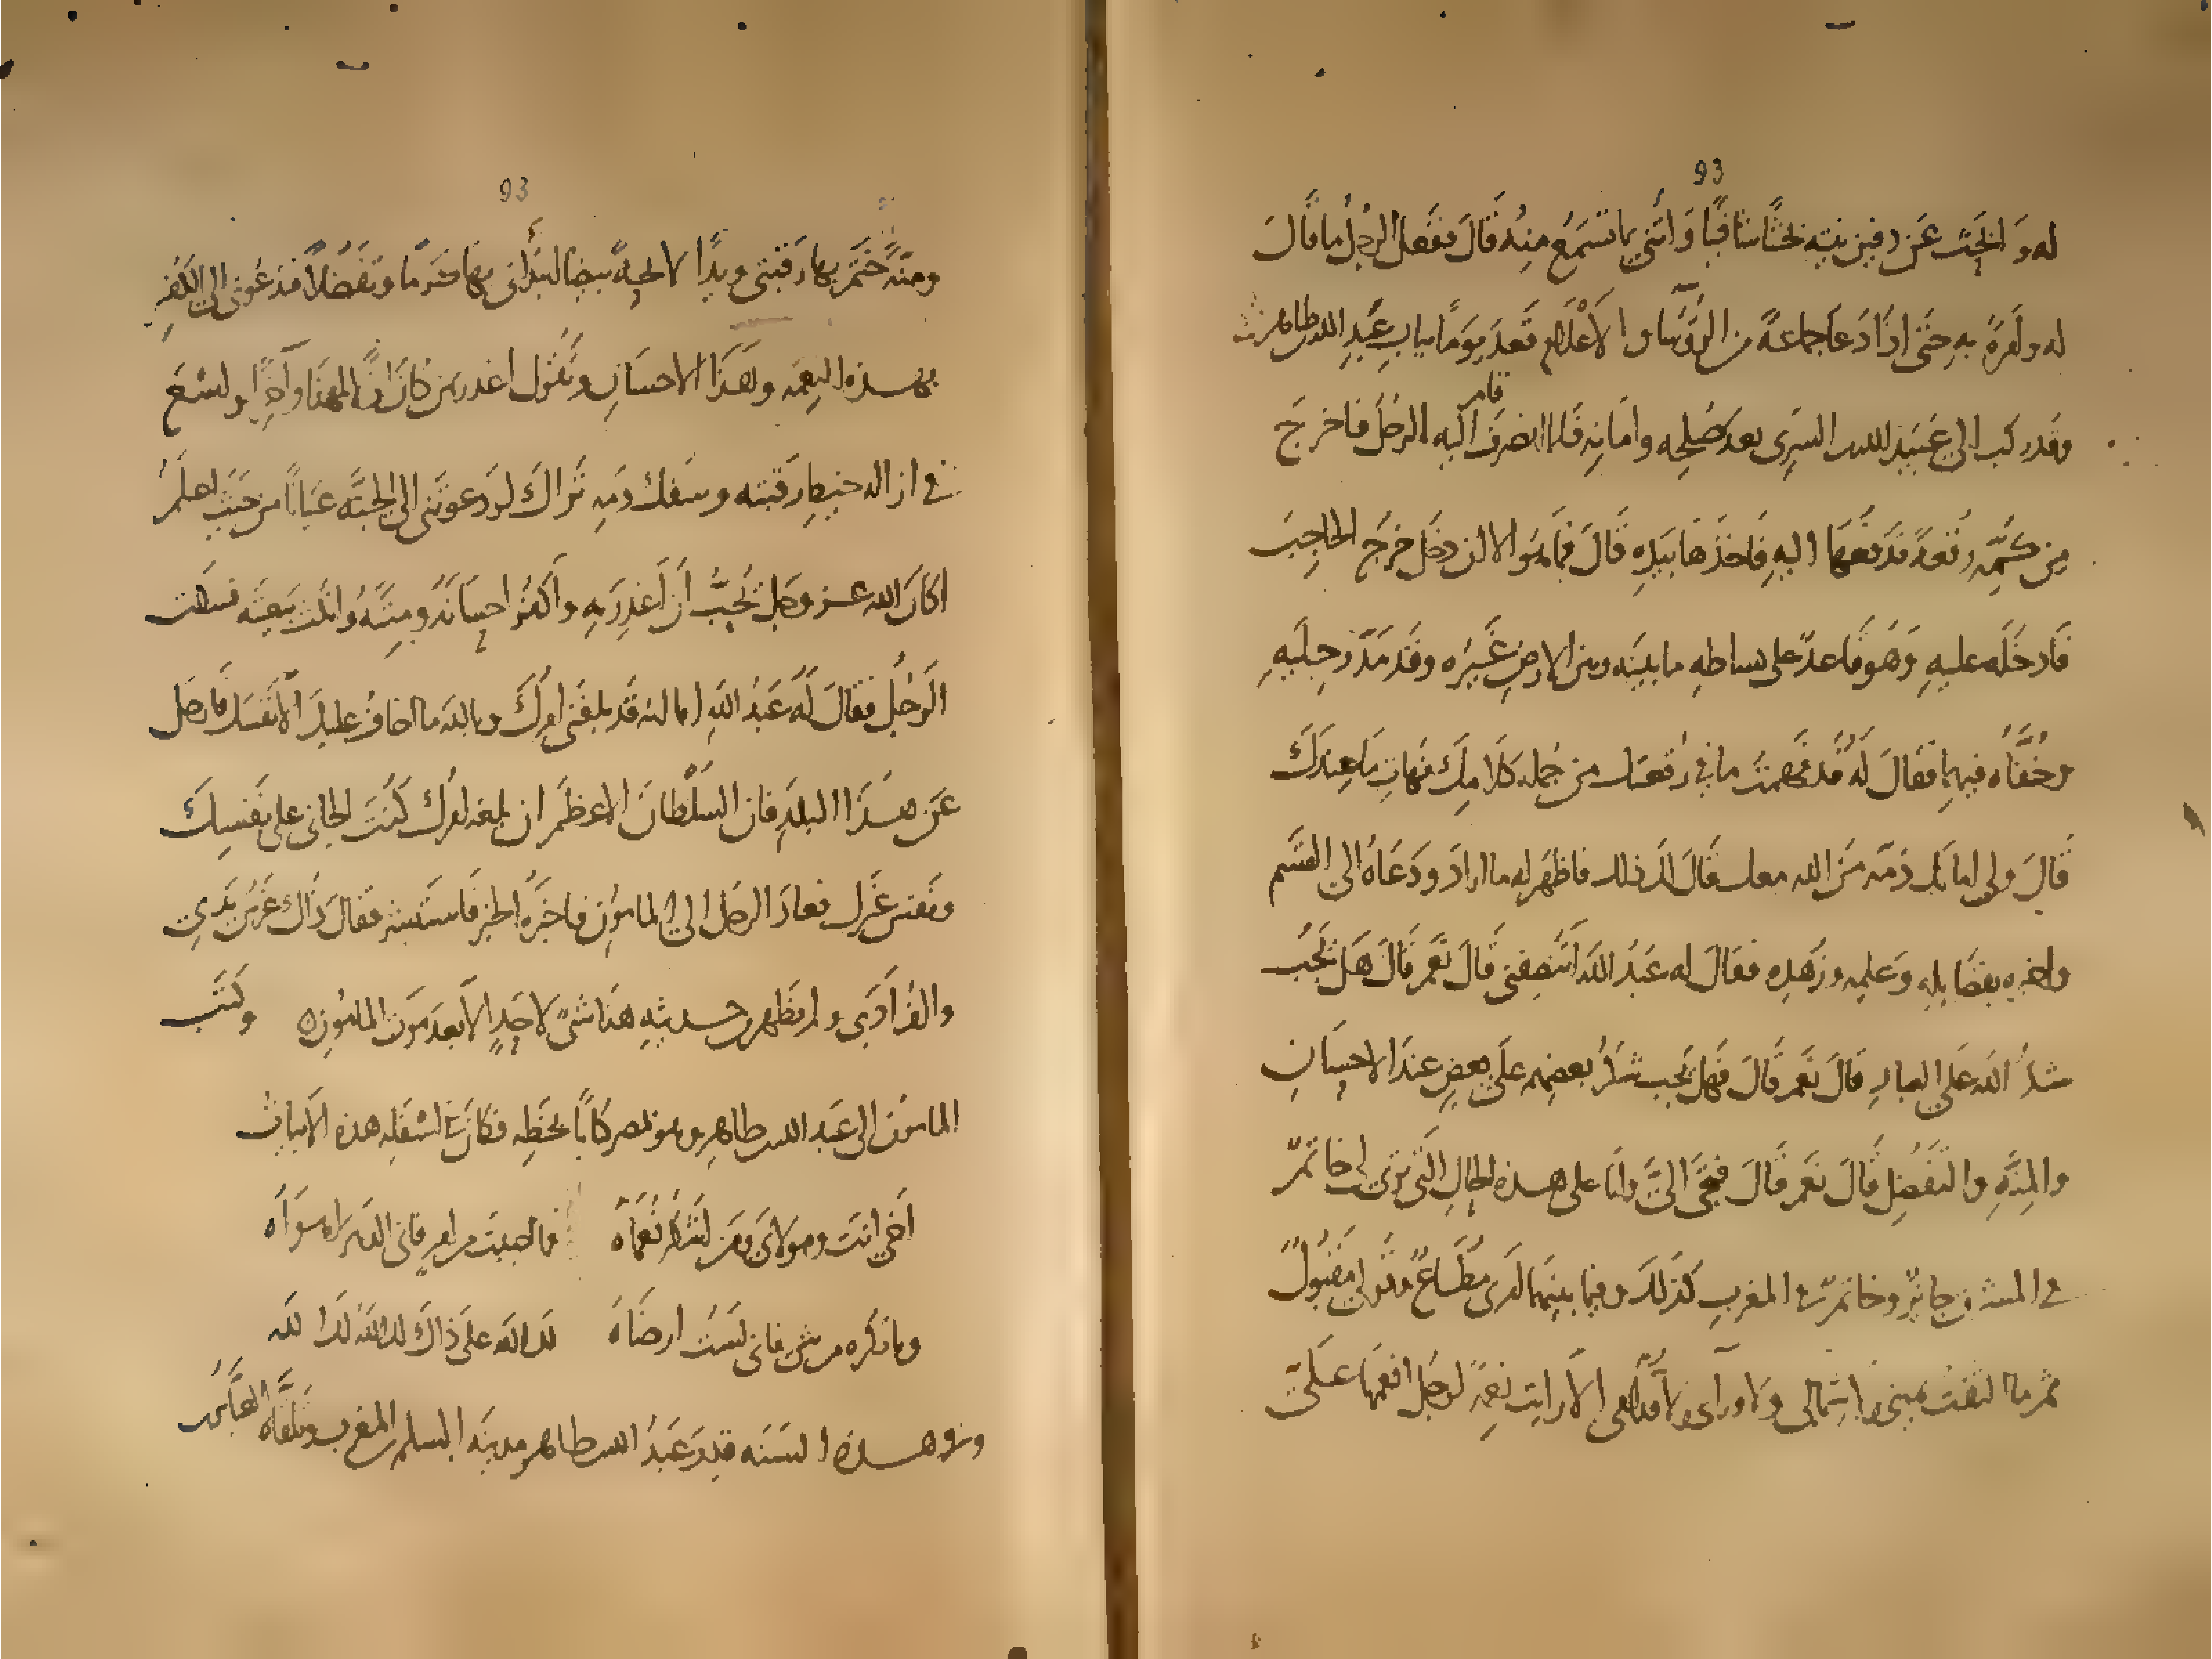 93
له وابحث عن دفين نيته بحثا شافيا وأتني بما تسمع منه قال ففعل الرجل ما قال
له وأمره به حتى اذا دعا جماعة من الرؤسا والاعلام قعد يوما بباب عبد الله بن طاهر
وقد ركب الى عبيد الله بن السري بعد صلحه وامانه فلما انصرف قام اليه الرجل فاخرج
من كمه رقعة فدفعها اليه فاخذها بيده قال فما هو الا ان دخل خرج الحاجب
فادخله عليه وهو قاعد على بساطه ما بينه وبين الارض غيره وقد مد رجليه
وخفاه فيهما فقال له قد فهمت ما في رقعتك من جملة كلامك فهات ما عندك
قال ولي امانك وذمة من الله معك قال لك ذلك فاظهر له ما اراد ودعاه الى القسم
واخبره بفضايله وعلمه وزهده فقال له عبد الله أتنصفني قال نعم قال هل يجب
شكر الله على العباد قال نعم قال فهل يجب شكر بعضهم على بعض عند الاحسان
والمنة والتفضل قال نعم قال فتجي الي وانا على هذه الحال التي ترى لي خاتم
في المشرق جائز وخاتم في المغرب كذلك وفيما بينهما امري مطاع وقولي مقبول
ثم ما التفت يميني ولا شمالي ولا ورآي ولا قدامي الا رايت نعمة لرجل انعمها علي
93
ومنة ختم بها رقبتي ويدا لايحة بيضا ابتداني بها كرما وتفضلا فتدعوني الى الكفر
بهذه النعمة وهذا الاحسان وتقول اغدر بمن كان اولا لهذا وآخرا واسع
في ازالة خيط رقبته وسفك دمه تراك لو دعوتني الى الجنة عيانا من حيث اعلم
اكان الله عز وجل يحب أن أغدر به وأكفر احسانه ومنته وانكث بيعته فسكت
الرجل فقال له عبد الله اما انه قد بلغني امرك وبالله ما اخاف عليك الا نفسك فارحل
عن هذا البلد فان السلطان الاعظم ان بلغه امرك كنت الجاني على نفسك
ونفس غيرك فعاد الرجل الى المامون فاخبره الخبر فاستبشر فقال ذاك غرس يدي
والف أدبي ولم يظهر من حديثه هذا شئ لاحد الا بعد موت المامون وكتب
المامون الى عبد الله بن طاهر وهو بمصر كتابا بخطه فكان في اسفله هذه الابيات
أخي انت ومولاي ومن اشكر نعماه فما احببت من امر فاني الدهر اهواه
وما تكره من شي فاني لست ارضاه لك الله على ذاك لك الله لك الله
وفي هذه السنة قدم عبد الله بن طاهر مدينة السلم من المغرب وتلقاه العباس